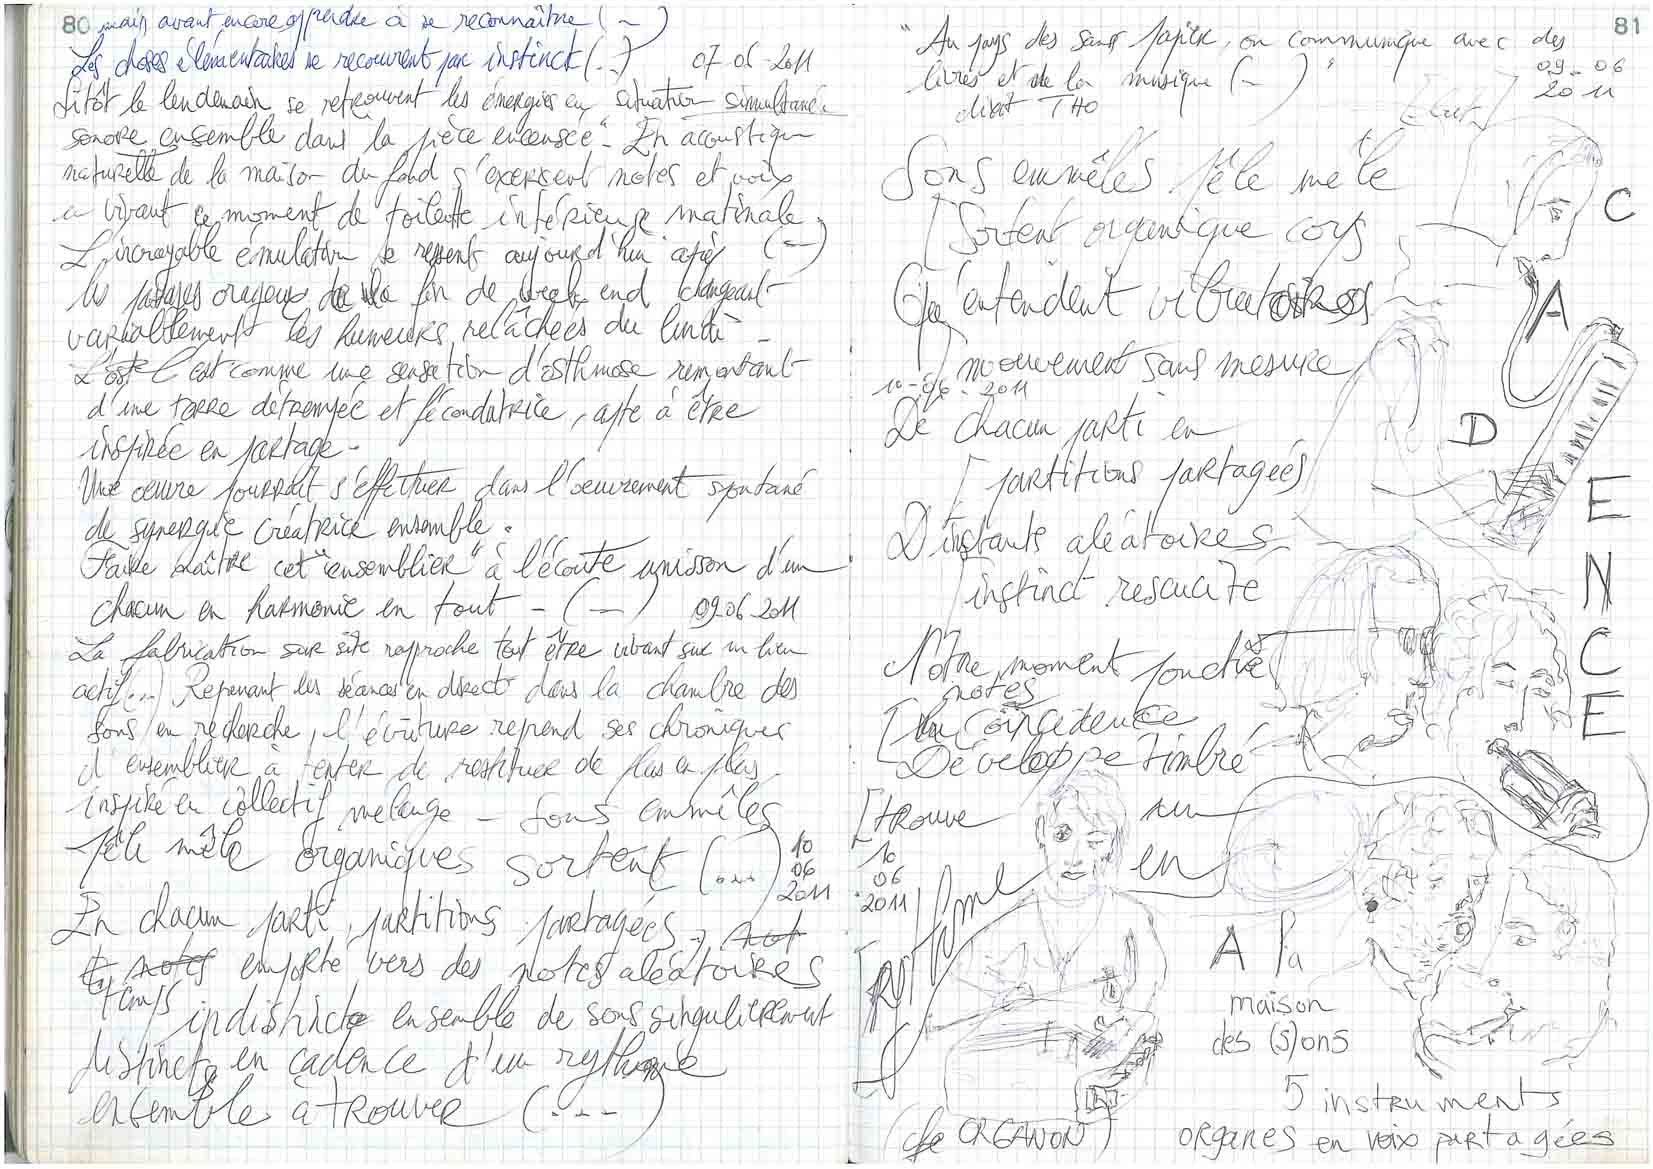 80 mais avant encore apprendre à se reconnaître (–)
Les choses élémentaires se recouvrent par instinct (..) 07-06-2011
Sitôt le lendemain se retrouvent les énergies en situation simultané
sonore ensemble dans la pièce encensée". En acoustique
naturelle de la maison du fond s'exercent notes et voix
vivant ce moment de toilette intérieure matinale.
L'incroyable émulation se ressent aujourd'hui après (–)
les passages orageux de la fin de week end changeant
variablement les humeurs relâchées du lundi –
c'est comme une sensation d'osthmose remontant
d'une terre détrempée et fécondatrice, apte à être
inspirée en partage.
Une œuvre pourrait s'effectuer dans l'œuvrement spontané
de synergie créatrice ensemble.
Faire naître cet "ensemblier" à l'écoute unisson d'un
chacun en harmonie en tout – (–) 09-06-2011
La fabrication sur site raproche tout être vivant sur un lieu
actif...) Reprenant les séances en direct dans la chambre des
sons en recherche, l'écriture reprend ses chroniques
d'ensemblier à tenter de restituer de plus en plus
inspiré en collectif mélange – Sons emmêlés
Pêle mêle organiques sortent (...) 10 06 2011
En chacun parti, partitions partagées,
temps emporté vers des notes aléatoires
indistincte ensemble de sons singulièrement
distincts en cadence d'un rythme
ensemble à trouver (---)
81
"Au pays des sans papier, on communique avec des
livres et de la musique (–)"
disait THO
09-06
2011
Sons emmêlés pêle mêle
[Sortent organique corps
Qu'entendent vibratoires
mouvement sans mesure
10-06-2011
De chacun parti en
[partitions partagées
D'instants aléatoires
instinct rescucité
Notre moment ponctué
notes
[en coïncidence
Développe timbré
[trouve un
10
06
2011
rythme en
CADENCE
A la
maison
des (s)ons
5 instruments
(de ORGANON) organes en voix partagées